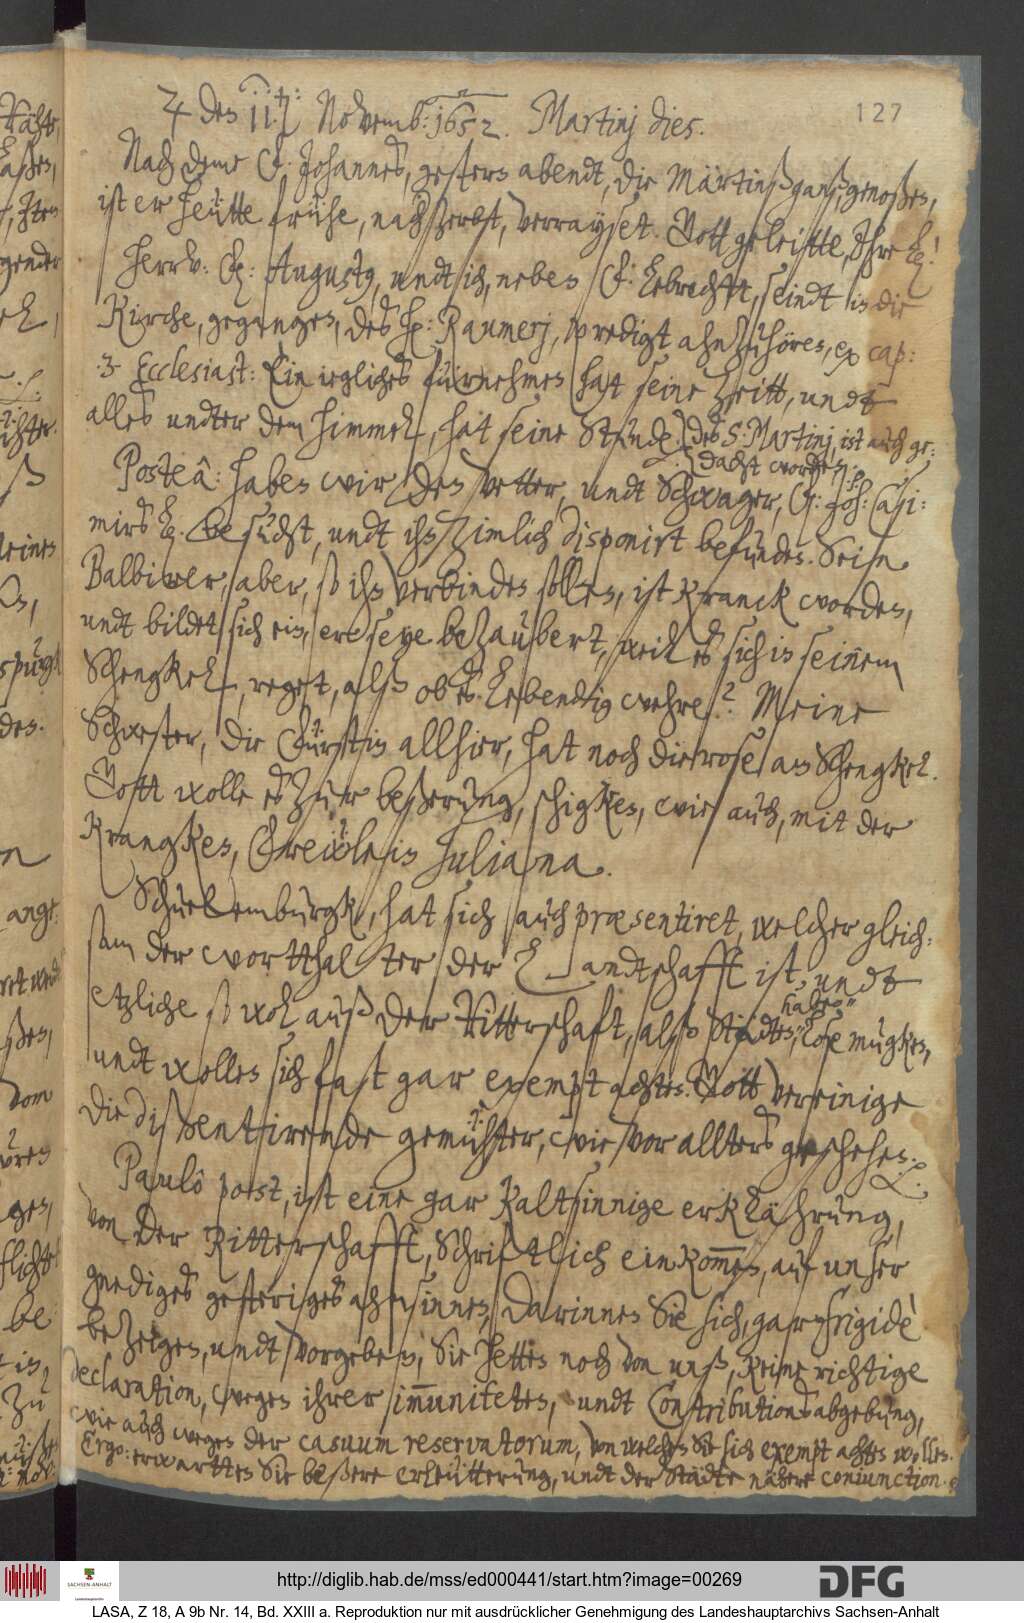 127
♃ den 11.ten: Novemb: 1652. Martinj dies.
Nach deme F. Johannes, gestern abendt, die Märtinßganß, genoßen,
ist er heütte frühe, nach Zerbst, verrayset. Gott geleitte, Ihre L.!
Herr v: F: Augusty, undt ich, neben F: Lebrechtt, seindt in die
Kirche, gegangen, des hr: Raumerj, predigt ahnzuhören, ex cap:
.3. Ecclesiast: Ein iegliches fürnehmen hat seine Zeitt, undt
alles undter dem himmel, hat seine Stunde. des S: Martinj, ist auch ge-
dacht worden.
Posteâ: haben wir den Vetter, undt Schwager, F: Joh: Casi-
mirs L. besucht, undt ihn zimlich disponirt befunden. Sein
Balbirer, aber, so ihn verbinden sollen, ist kranck worden,
undt bildet sich ein, er seye bezaubert, weil es sich in seinem
Schengkel, reget, alß ob es lebendig wehre? Meine
Schwester, die Fürstin allhier, hat noch die rose am Schengkel.
Gott wolle es zur beßerung, schigken, wie auch, mit der
krangken, Freülein Juliana.
Schulemburgk, hat sich auch præsentiret, welcher gleich-
sam der wortthalter der Landtschafft ist, undt
etzliche so wol auß der Ritterschaft, alß Städten, haben lose mugken,
undt wollen sich fast gar exempt achten. Gott vereinige
die dissentirende gemühter, wie vor alters geschehen.
Paulô post, ist eine gar kaltsinnige erklährung,
von der Ritterschafft, Schriftlich einkommen, auf unser
gnediges gesteriges ahnsinnen, darinnen Sie sich, gar frigidè
bezeigen, undt vorgeben, Sie hetten noch von unß, keine richtige
declaration, wegen ihrer immuniteten, undt Contributionsabgebung,
wie auch wegen der casuum reservatorum, von welchen Sie sich exempt achten wollen.
Ergo: erwartten Sie beßere erleütterung, undt der Städte nähere coniunction.
http://diglib.hab.de/mss/ed000441/start.htm?image=00269
DFG
SACHSEN-ANHALT
LASA, Z 18, A 9b Nr. 14, Bd. XXIII a. Reproduktion nur mit ausdrücklicher Genehmigung des Landeshauptarchivs Sachsen-Anhalt